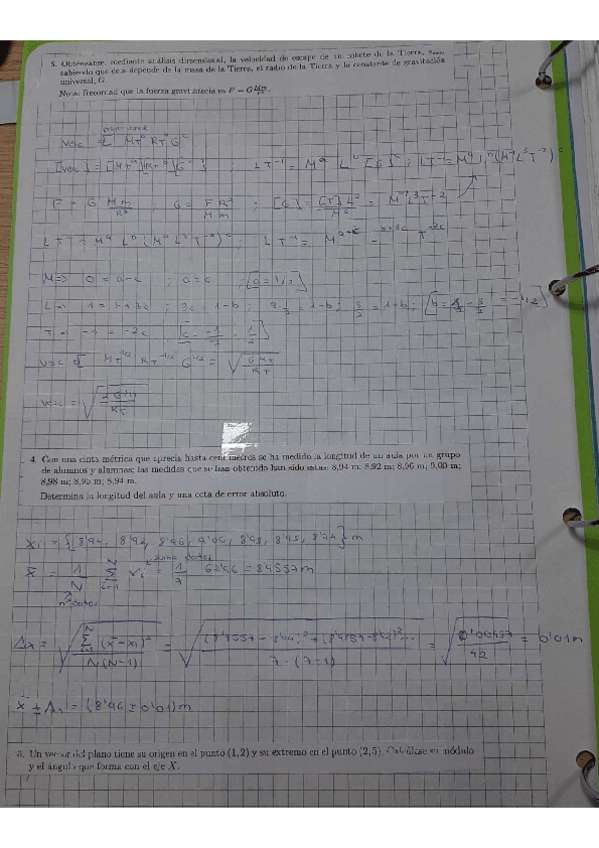 5. Obtener, mediante análisis dimensional, la velocidad de escape de un cohete de la Tierra,
sabiendo que ésta depende de la masa de la Tierra, el radio de la Tierra y la constante de gravitación
universal, G.
Nota: Recordad que la fuerza gravitatoria es F = G Mm/r².
vesc α MT^a RT^b G^c
[vesc] = [MT^a][RT^b][G^c] LT^-1 = M^a L^b [G]^c ; LT^-1 = M^a L^b (M^-1 L^3 T^-2)^c
F = G Mm/R² ; G = F R²/M m ; [G] = [F] L²/M² = M^-1 L^3 T^-2
LT^-1 = M^a L^b (M^-1 L^3 T^-2)^c ; LT^-1 = M^a-c L^b+3c T^-2c
M => 0 = a-c ; a = c ; [a = 1/2]
L => 1 = b+3c ; 3c = 1-b ; 3 1/2 = 1-b ; 3/2 = 1-b ; [b = - 3/2 = -1/2]
T => -1 = -2c [c = -1/-2 = 1/2]
vesc α MT^1/2 RT^-1/2 G^1/2 = √(G MT/RT)
vesc = √(2GMT/RT)
4. Con una cinta métrica que aprecia hasta centímetros se ha medido la longitud de un aula por un grupo
de alumnos y alumnas; las medidas que se han obtenido han sido estas: 8,94 m; 8,92 m; 8,96 m; 9,00 m;
8,98 m; 8,95 m; 8,94 m.
Determina la longitud del aula y una cota de error absoluto.
xi = {8'94, 8'92, 8'96, 9'00, 8'98, 8'95, 8'94} m
suma datos
x̄ = 1/N Σ xi = 1/7
nº datos
Δx = √(Σ (x̄-xi)²/N(N-1)) = = = 0'01m
7·(7-1) 42
x̄ ± Δx = (8'96 ± 0'01) m
3. Un vector del plano tiene su origen en el punto (1,2) y su extremo en el punto (2,5). Calcúlese su módulo
y el ángulo que forma con el eje X.